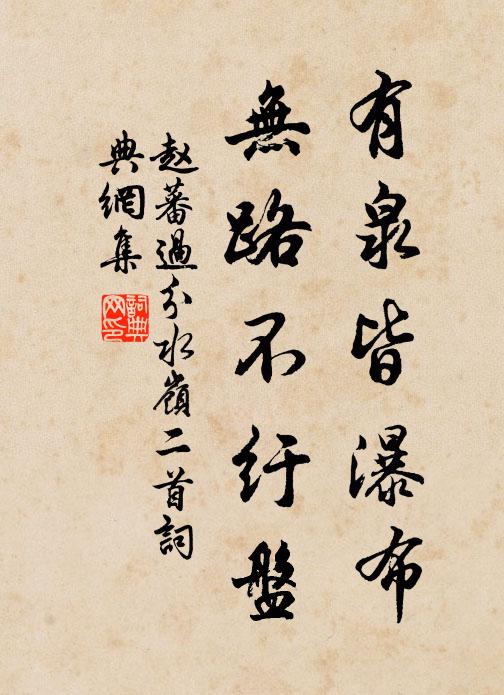 有泉皆瀑布
無路不紆盤
赵蕃過分水嶺二首詞
典網集
詞典网印